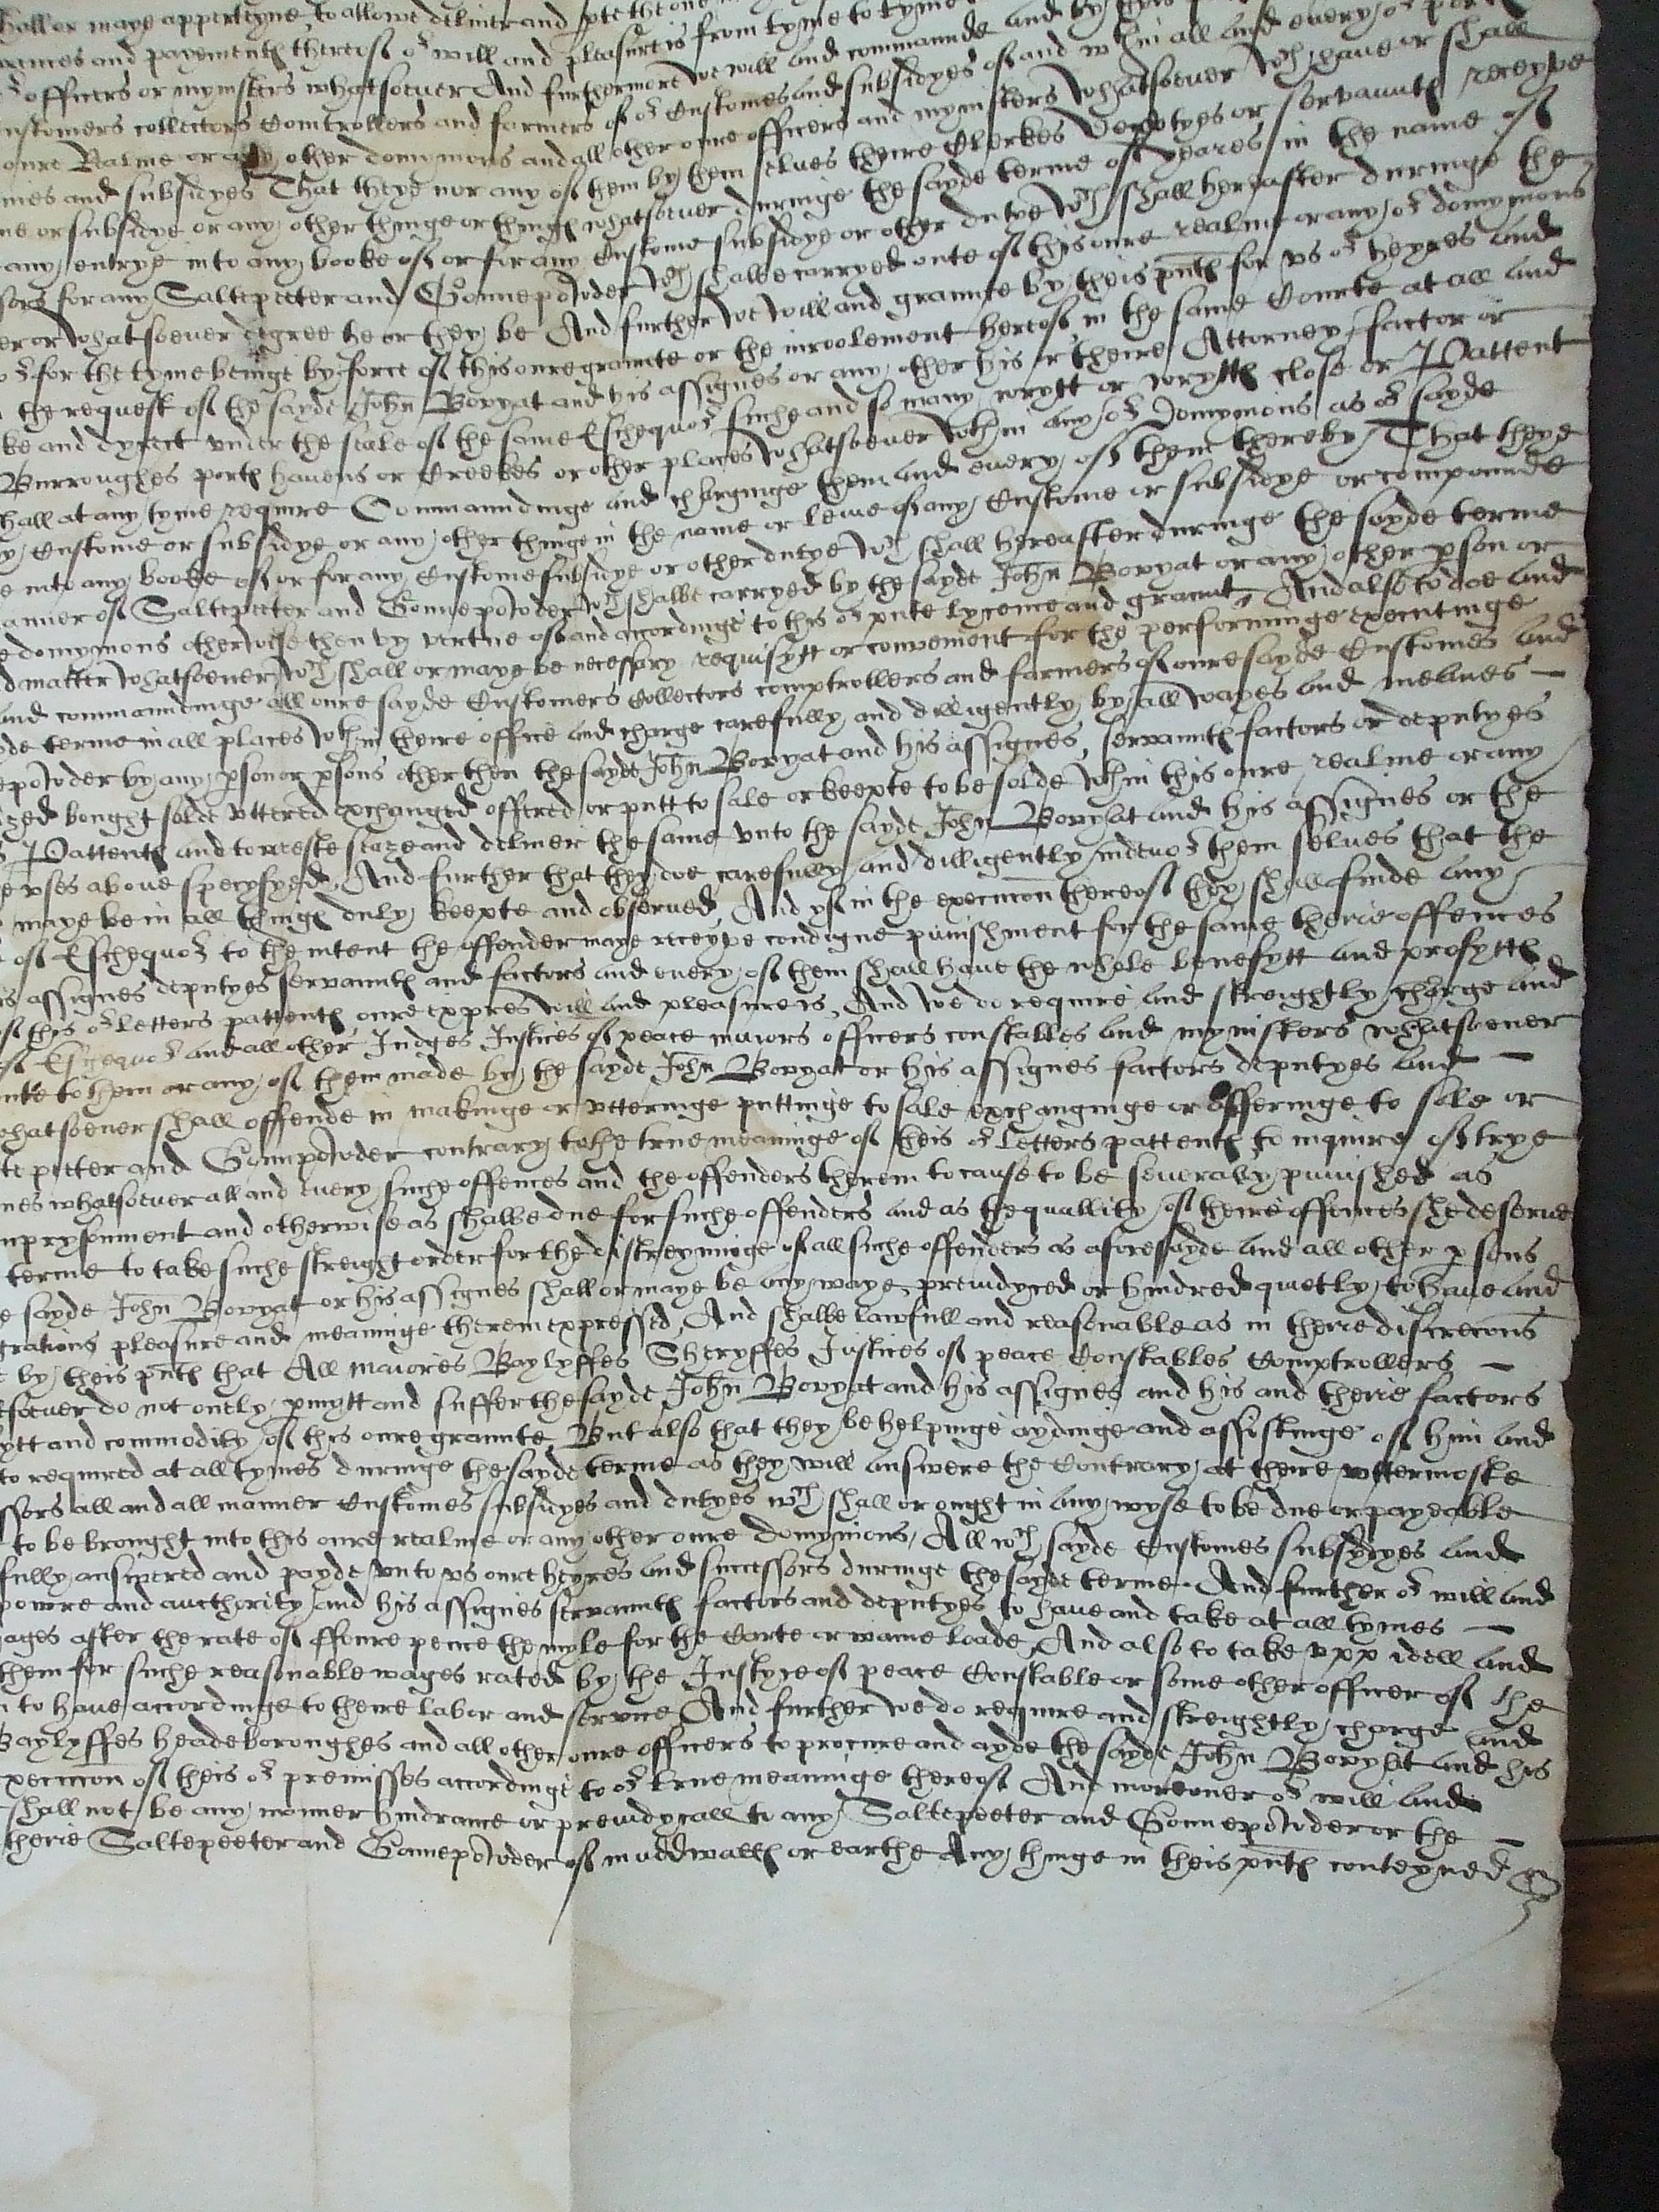 shall or maye apperteyne to allowe delyver and
and paymentℓ thereof oʳ will and pleasure is from tyme to tyme
officers or mynisters whatsoeuer And furthermore we will and commaunde and by
customers collectors Comtrollers and farmers of oʳ Customes and subsidyes of and wᵗʰin all and euery oʳ
oure Realme or any other domynions and all other oure officers and mynisters whatsoeuer wᶜʰ haue or shall
and subsidyes That theye nor any of them by them selues theire Clerkes deputyes or servauntℓ receyve
or subsidye or any other thinge or thingℓ whatsoeuer duringe the sayde terme of yeares in the name of
any entrye into any booke of or for any Custome subsidye or other dutye wᶜʰ shall hereafter duringe the
for any Saltepeeter and Gonnepowder wᶜʰ shalbe carryed oute of this oure realme or any oʳ domynions
or whatsoeuer degree he or they be And further we will and graunte by theis pñtℓ for vs oʳ heyres and
for the tyme beinge by force of this oure graunte or the inroolement hereof in the same Courte at all and
the request of the sayde John Bovyat and his assignes or any other his or theire Attorney factor or
and dyrect vnder the seale of the same Eschequoʳ suche and so many wrytt or wryttℓ close or Pattent
Burroughes portℓ havens or Creekes or other places whatsoeuer wᵗʰin any oʳ domynions as oʳ sayde
shall at any tyme require Commaundinge and chargeinge them and euery of them thereby That theye
Custome or subsidye or any other thinge in the name or lewe of any Custome or subsidye or compounde
into any booke of or for any Custome subsidye or other dutye wᶜʰ shall hereafter duringe the sayde terme
of Saltepeeter and Gonnepowder wᶜʰ shalbe carryed by the sayde John Bovyat or any other pson or
domynions otherwise then by vertue of and accordinge to this oʳ pñte lycence and graunt, And also to doe and
matter whatsoeuer wᶜʰ shall or maye be necessary requisytt or convenient for the performinge executinge
and commaundinge all oure sayde Customers Collectors comptrollers and farmers of oure sayde Customes and
terme in all places wᵗʰin theire office and charge carefully and dilligently by all wayes and meanes —
by any pson or psons other then the sayde John Bovyat and his assignes, servauntℓ factors or deputyes
bought solde vttered exchanged offered or putt to sale or keepte to be solde wᵗʰin this oure realme or any
Pattentℓ and to areste seaze and deliuer the same vnto the sayde John Bovyat and his assignes or the
vses aboue specyfyed, And further that they doe carefully and dilligently indeuoʳ them selues that the
maye be in all thingℓ duly keepte and observed, And yf in the execucōn thereof they shall finde any
of Eschequoʳ to the intent the offender maye receyve condigne punishment for the same theire offences
assignes deputyes servauntℓ and factors and euery of them shall haue the whole benefytt and profyttℓ
of this oʳ letters pattentℓ oure expres will and pleasure is, And we do require and streightly charge and
Eschequoʳ and all other Judges Justices of peace maiors officers constables and mynisters whatsoeuer
to them or any of them made by the sayde John Bovyat or his assignes factors deputyes and —
whatsoeuer shall offende in makinge or vtteringe puttinge to sale exchanginge or offeringe to sale or
and Gonnpowder contrary to the true meaninge of theis oʳ letters pattentℓ to inquire of trye
whatsoeuer all and euery suche offences and the offenders therein to cause to be severally punished as
and otherwise as shalbe due for suche offenders and as the quallity of theire offences she deserue
terme to take suche streight order for the distreyninge of all suche offenders as aforesayde and all other psons
sayde John Bovyat or his assignes shall or maye be any waye preiudyced or hindred quietly to haue and
pleasure and meaninge therein expressed, And shalbe lawfull and reasonable as in theire discrecions
by theis pñtℓ that All maiores Baylyffes Sheryffes Justices of peace Constables Comptrollers —
do not onely pmytt and suffer the sayde John Bovyat and his assignes and his and theire factors
and commodity of this oure graunte But also that they be helpinge aydinge and assistinge of him and
required at all tymes duringe the sayde terme as they will answere the Contrary at theire vttermoste
all and all manner Customes subsidyes and dutyes wᶜʰ shall or ought in any wyse to be due or payeable
to be brought into this oure realme or any other oure domynions, All wᶜʰ sayde Customes subsydyes and
answered and payde vnto vs oure heyres and successors duringe the sayde terme. And further oʳ will and
and aucthority and his assignes servauntℓ factors and deputyes to haue and take at all tymes —
after the rate of ffoure pence the myle for the Carte or waine loade, And also to take vpp idell and
them for suche reasonable wages rated by the Justyce of peace Constable or some other officer of the
to haue accordinge to theire labor and service And further we do require and streightly charge and
Baylyffes headeboroughes and all other oure officers to procure and ayde the sayde John Bovyat and his
of theis oʳ premisses accordinge to oʳ true meaninge thereof And moreouer oʳ will and
shall not be any manner hindrance or preiudycall to any Saltepeeter and Gonnepowder or the —
theire Saltepeeter and Gonnepowder of muddwallℓ or earthe Any thinge in theis pñtℓ conteyned